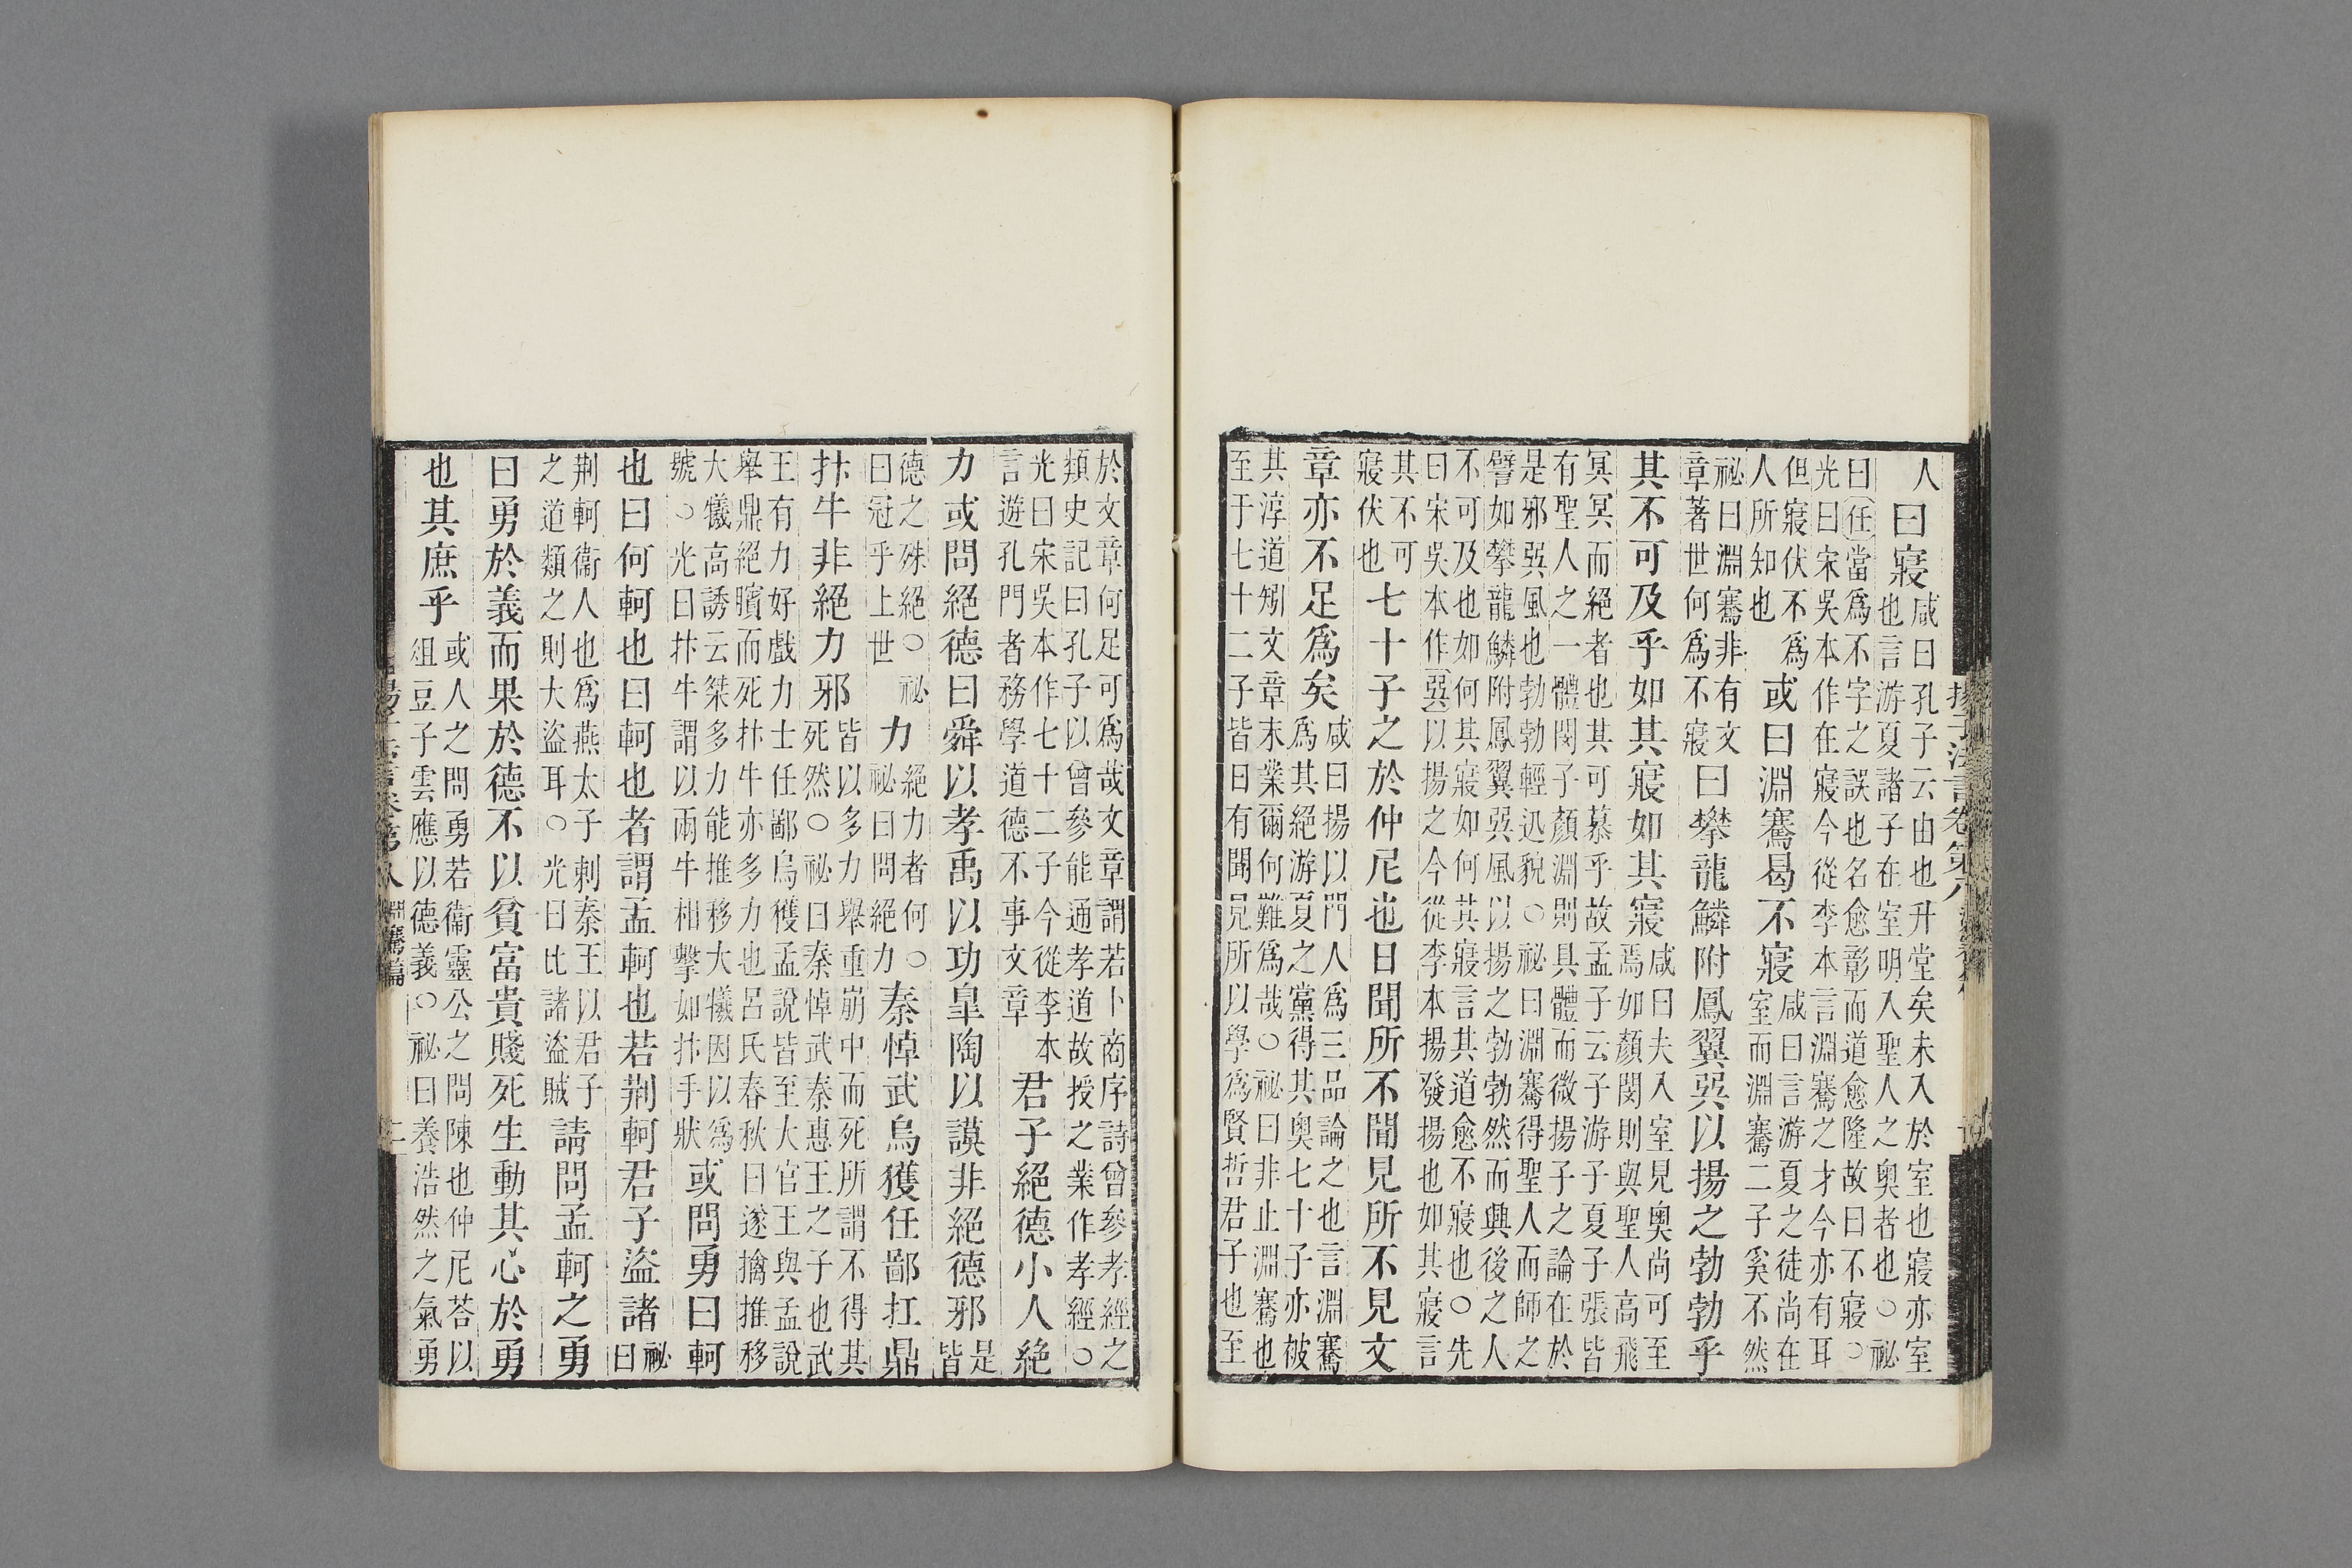 揚子法言卷第八
人曰寢咸曰孔子云由也升堂矣未入於室也寢亦室
也言游夏諸子在室明入聖人之奧者也○祕
曰任當爲不字之誤也名愈彰而道愈隆故曰不寢○
光曰宋吳本作在寢今從李本言淵騫之才今亦有耳
但寢伏不爲
人所知也
或曰淵騫曷不寢
咸曰言游夏之徒尚在
室而淵騫二子奚不然
祕曰淵騫非有文
章著世何爲不寢
曰攀龍鱗附鳳翼巽以揚之勃勃乎
其不可及乎如其寢如其寢
咸曰夫入室見奧尚可至
焉如顏閔則與聖人高飛
冥冥而絕者也其可慕乎故孟子云子游子夏子張皆
有聖人之一體閔子顏淵則具體而微揚子之論在於
是邪巽風也勃勃輕迅貌○祕曰淵騫得聖人而師之
譬如攀龍鱗附鳳翼巽風以揚之勃勃然而興後之人
不可及也如何其寢如何其寢言其道愈不寢也○先
曰宋吳本作巽以揚之今從李本揚發揚也如其寢言
其不可
寢伏也
七十子之於仲尼也日聞所不聞見所不見文
章亦不足爲矣
咸曰揚以門人爲三品論之也言淵騫
爲其絕游夏之黨得其奧七十子亦被
其淳道矧文章末業爾何難爲哉○祕曰非止淵騫也
至于七十二子皆日有聞見所以學爲賢哲君子也至
於文章何足可爲哉文章謂若卜商序詩曾參孝經之
類史記曰孔子以曾參能通孝道故授之業作孝經○
光曰宋吳本作七十二子今從李本
言遊孔門者務學道德不事文章
君子絕德小人絶
力或問絕德曰舜以孝禹以功皐陶以謨非絕德邪
是
皆
德之殊絕○祕
曰冠乎上世
力
絕力者何○
祕曰問絕力
秦悼武烏獲任鄙扛鼎
抃牛非絕力邪
皆以多力舉重崩中而死所謂不得其
死然○祕曰秦悼武秦惠王之子也武
王有力好戲力士任鄙烏獲孟說皆至大官王與孟說
舉鼎絕臏而死抃牛亦多力也呂氏春秋曰遂擒推移
大犧高誘云桀多力能推移大犧因以爲
號○光曰抃牛謂以兩牛相擊如抃手狀
或問勇曰軻
也曰何軻也曰軻也者謂孟軻也若荆軻君子盜諸
祕
曰
荆軻衞人也爲燕太子刺秦王以君子
之道類之則大盜耳○光曰比諸盜賊
請問孟軻之勇
曰勇於義而果於德不以貧富貴賤死生動其心於勇
也其庶乎
或人之問勇若衞靈公之問陳也仲尼荅以
俎豆子雲應以德義○祕曰養浩然之氣勇
淵騫篇
二